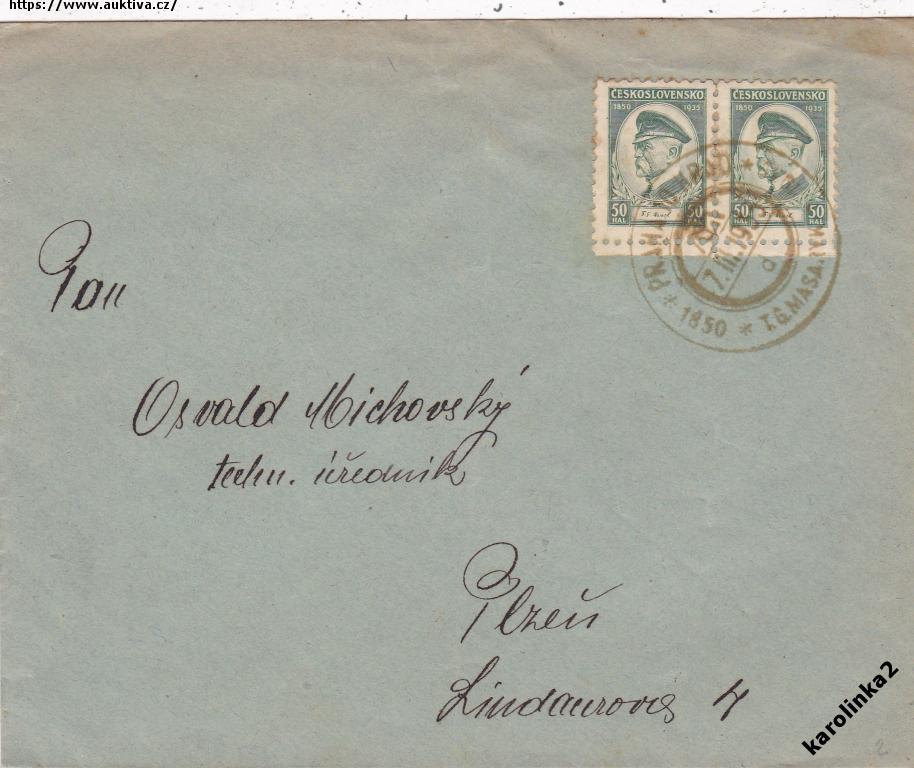 https://www.auktiva.cz/
ČESKOSLOVENSKO
1850 1935
50 HAL 50 HAL
ČESKOSLOVENSKO
1850 1935
50 HAL 50 HAL
PRAHA
7.III.19
a
* 1850 * T.G.MASARYK
Pan
Osvald Michovský
techn. úředník
Plzeň
Lindaurova 4
karolinka2
2